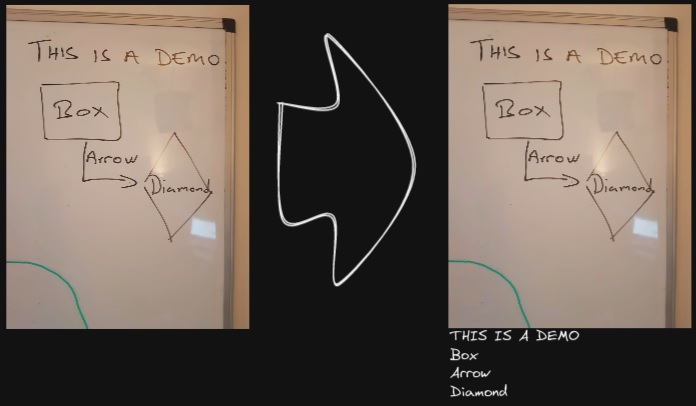 THIS IS A DEMO
Box
Arrow
Diamond
THIS IS A DEMO
Box
Arrow
Diamond
THIS IS A DEMO
Box
Arrow
Diamond